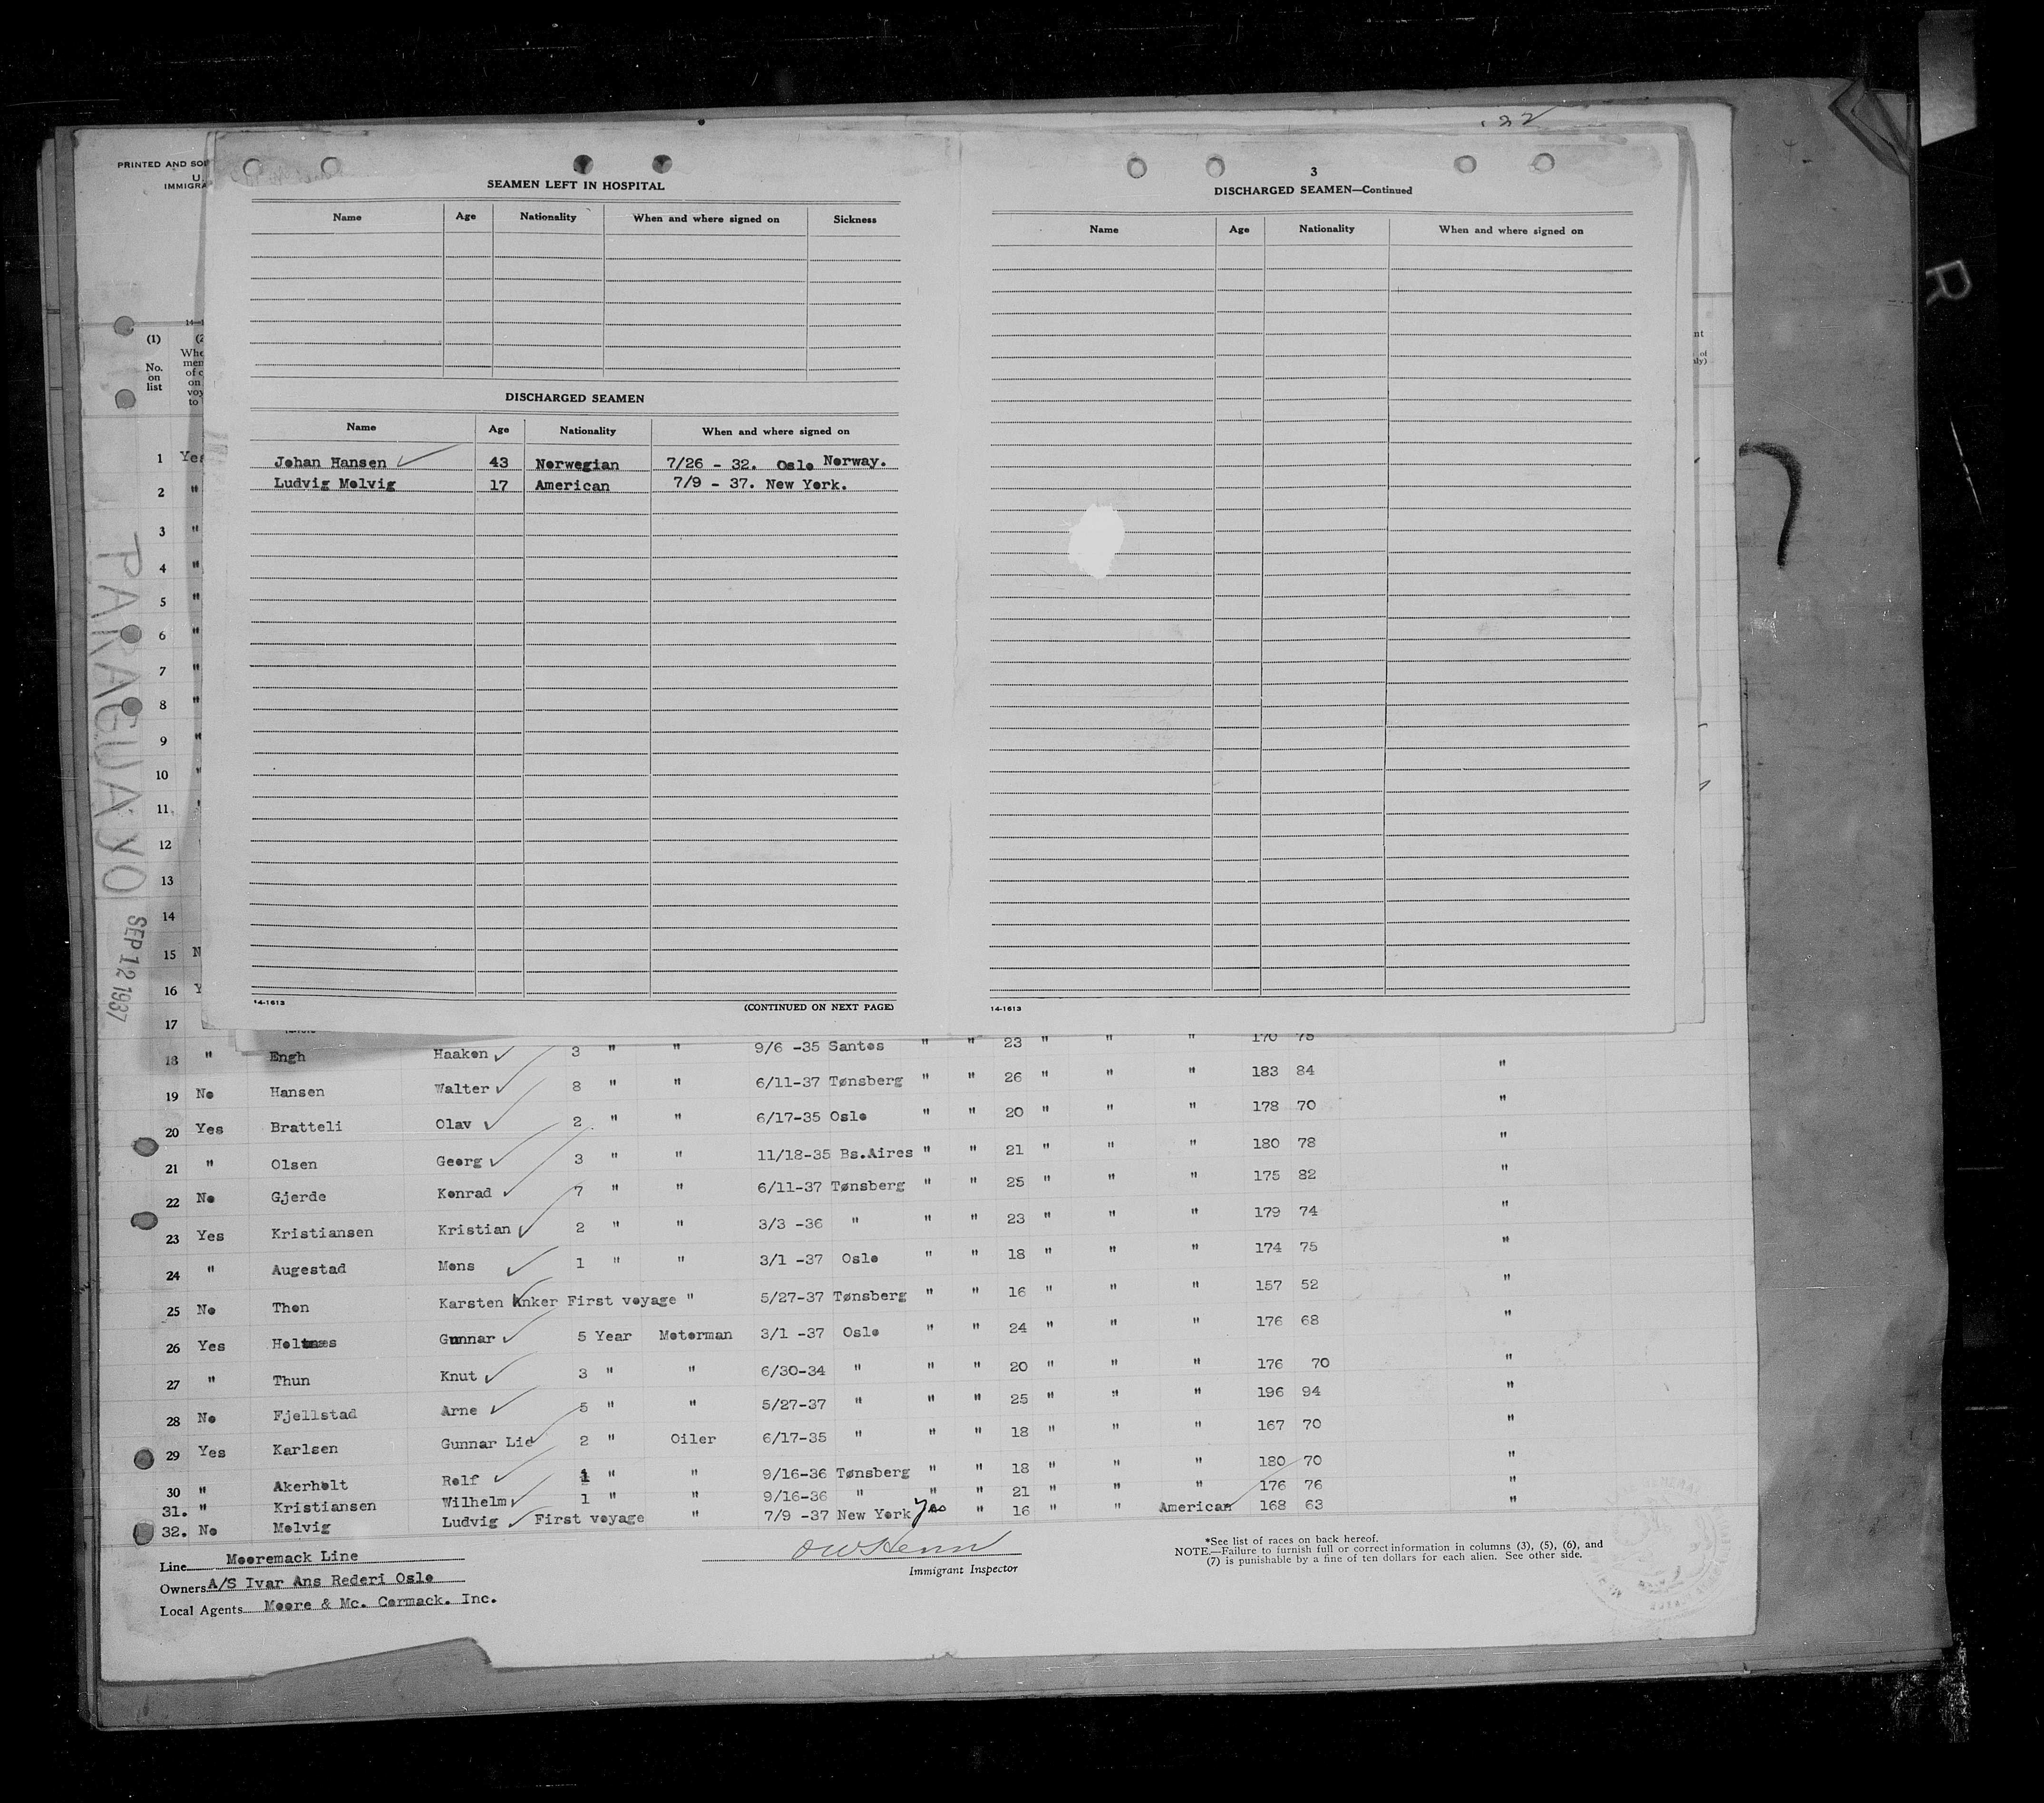 22
PRINTED AND SOL
U.
IMMIGRA
SEAMEN LEFT IN HOSPITAL
Name Age Nationality When and where signed on Sickness
DISCHARGED SEAMEN
Name Age Nationality When and where signed on
Johan Hansen 43 Norwegian 7/26 - 32. Oslo Norway.
Ludvig Melvig 17 American 7/9 - 37. New York.
14-1613
(CONTINUED ON NEXT PAGE)
3
DISCHARGED SEAMEN—Continued
Name Age Nationality When and where signed on
14-1613
(1)
No.
on
list
PARAGUAYO
SEP 12 1937
1 Yes
2 "
3 "
4 "
5 "
6 "
7 "
8 "
9 "
10 "
11
12
13
14
15 N
16 Y
17
18 " Engh Haakon 3 " " 9/6 -35 Santos " " 23 " " " 170 75
19 No Hansen Walter 8 " " 6/11-37 Tønsberg " " 26 " " " 183 84 "
20 Yes Bratteli Olav 2 " " 6/17-35 Oslo " " 20 " " " 178 70 "
21 " Olsen Georg 3 " " 11/18-35 Bs.Aires " " 21 " " " 180 78 "
22 No Gjerde Konrad 7 " " 6/11-37 Tønsberg " " 25 " " " 175 82 "
23 Yes Kristiansen Kristian 2 " " 3/3 -36 " " " 23 " " " 179 74 "
24 " Augestad Mons 1 " " 3/1 -37 Oslo " " 18 " " " 174 75 "
25 No Thon Karsten Anker First voyage " 5/27-37 Tønsberg " " 16 " " " 157 52 "
26 Yes Gunnar 5 Year Motorman 3/1 -37 Oslo " " 24 " " " 176 68 "
27 " Thun Knut 3 " " 6/30-34 " " " 20 " " " 176 70 "
28 No Fjellstad Arne 5 " " 5/27-37 " " " 25 " " " 196 94 "
29 Yes Karlsen Gunnar Lie 2 " Oiler 6/17-35 " " " 18 " " " 167 70 "
30 " Akerholt Rolf 1 " " 9/16-36 Tønsberg " " 18 " " " 180 70 "
31. " Kristiansen Wilhelm 1 " " 9/16-36 " " " 21 " " " 176 76 "
32. No Melvig Ludvig First voyage " 7/9 -37 New York Yes " 16 " " American 168 63 "
Line Mooremack Line
Owners A/S Ivar Ans Rederi Oslo
Local Agents Moore & Mc. Cormack. Inc.
Immigrant Inspector
*See list of races on back hereof.
NOTE.—Failure to furnish full or correct information in columns (3), (5), (6), and
(7) is punishable by a fine of ten dollars for each alien. See other side.
R